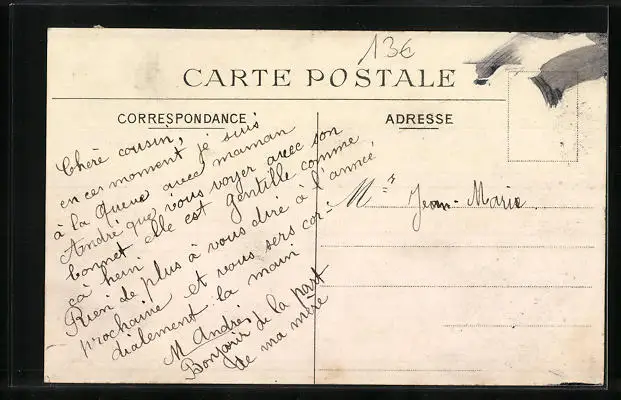 13€
CARTE POSTALE
CORRESPONDANCE
ADRESSE
Chère cousin,
en ces moment je suis
à la Queue avec maman
André que vous voyer avec son
bonnet elle est gentille comme
ça hein
Rien de plus à vous dire à l'année
prochaine et vous sers cor-
dialement la main
M André
Bonjour de la part
de ma mère
Mr Jean-Marie